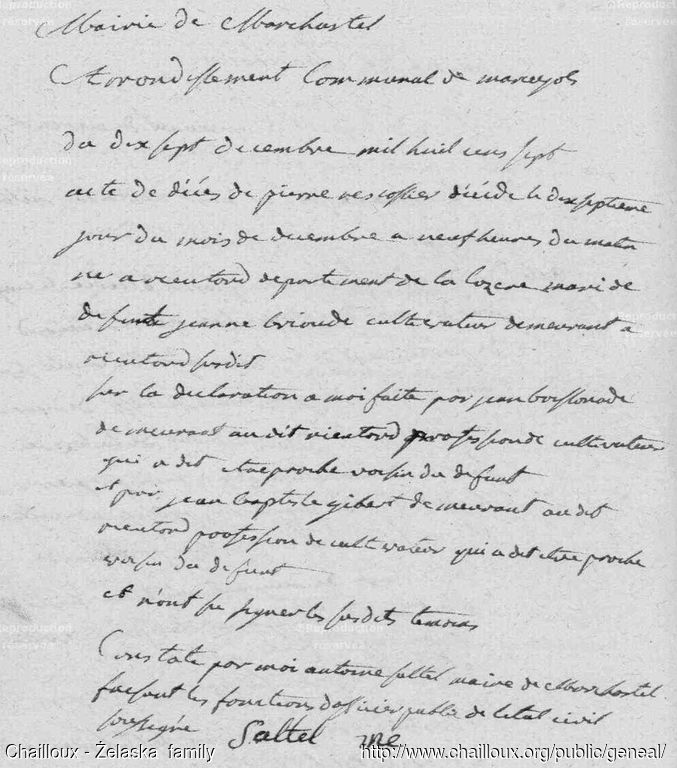 Mairie de Marchastel
Arrondissement Communal de marvejols
du dix sept decembre mil huit cens sept
acte de décés de pierre vescossier décédé le dix septieme
jour du mois de decembre a neuf heures du matin
né a rieutord departement de la lozere marié de
defunte jeanne brioude cultivateur demeurant a
rieutord susdit
sur la declaration a moi faite par jean boissonade
demeurant au dit rieutord profession de cultivateur
qui a dit etre proche voisin du defunt
et par jean baptiste gibert demeurant au dit
rieutord profession de cultivateur qui a dit etre proche
voisin du defunt
et n'ont su signer les susdits temoins
Constaté par moi antoine saltel maire de Marchastel
faisant les fonctions d'officier public de l'etat civil
soussigné Saltel
Chailloux - Želaska family http://www.chailloux.org/public/geneal/